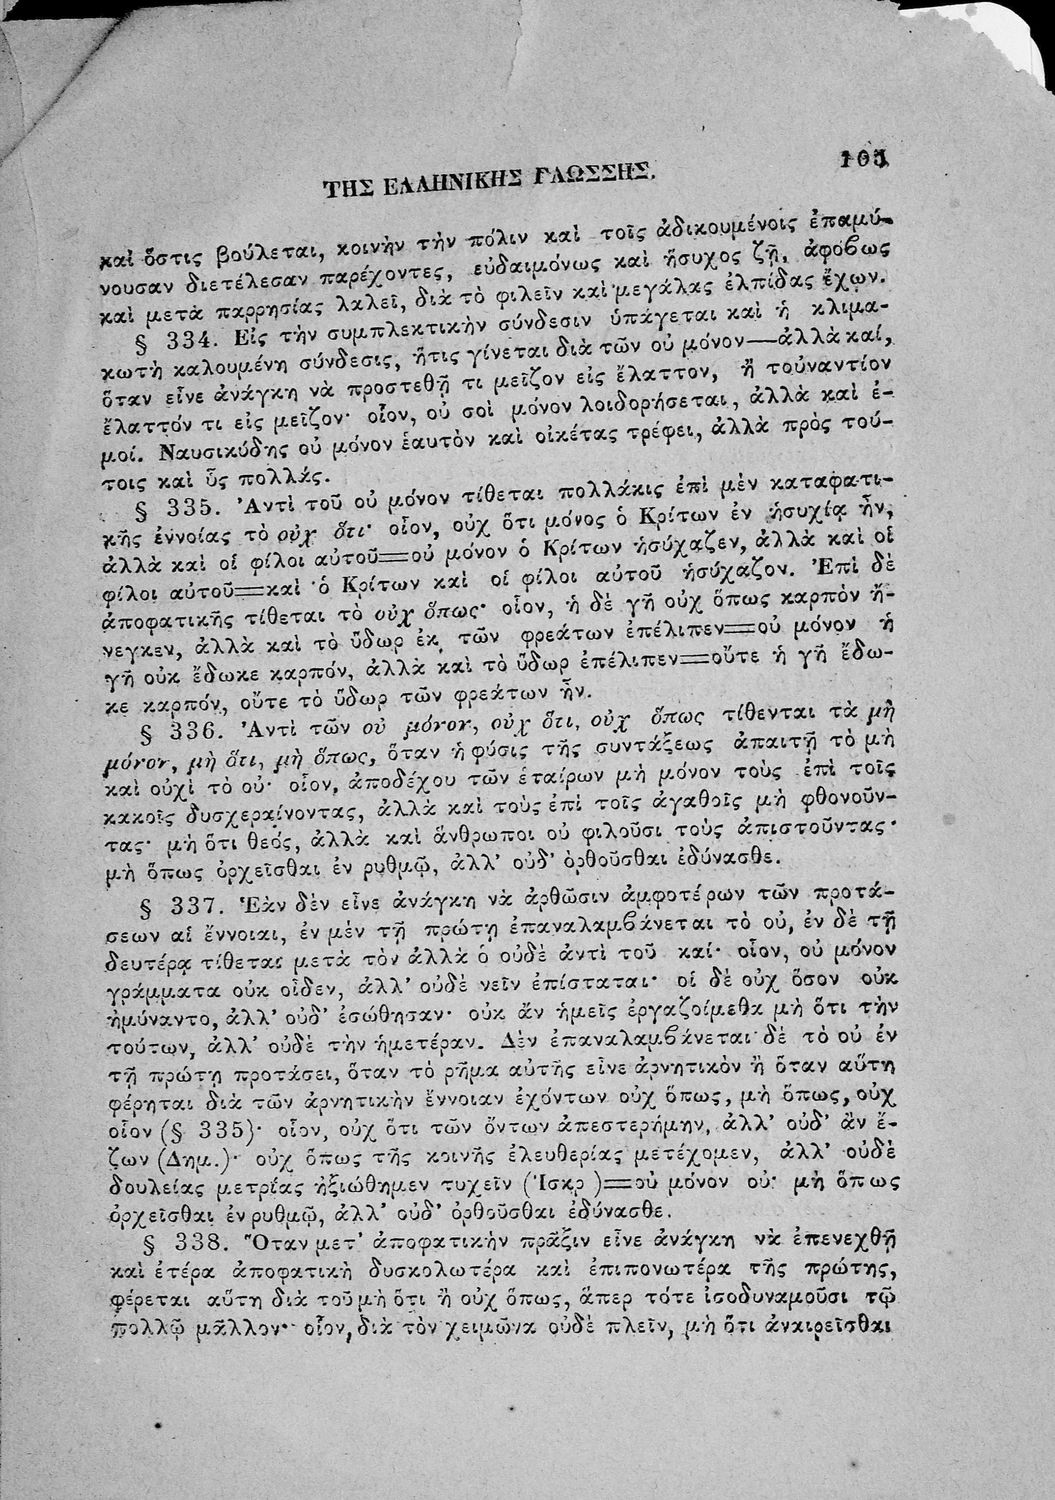 ΤΗΣ ΕΛΛΗΝΙΚΗΣ ΓΛΩΣΣΗΣ.
καὶ ὅστις βούλεται, κοινὴν τὴν πόλιν καὶ τοῖς ἀδικουμένοις ἐπαμύ-
νουσαν διετέλεσαν παρέχοντες, εὐδαιμόνως καὶ ἥσυχος ζῇ, ἀφόβως
καὶ μετὰ παρρησίας λαλεῖ, διὰ τὸ φιλεῖν καὶ μεγάλας ἐλπίδας ἔχων.
§ 334. Εἰς τὴν συμπλεκτικὴν σύνδεσιν ὑπάγεται καὶ ἡ κλιμα-
κωτὴ καλουμένη σύνδεσις, ἥτις γίνεται διὰ τῶν οὐ μόνον—ἀλλὰ καί,
ὅταν εἶνε ἀνάγκη νὰ προστεθῇ τι μεῖζον εἰς ἔλαττον, ἢ τοὐναντίον
ἔλαττόν τι εἰς μεῖζον· οἷον, οὐ σοὶ μόνον λοιδορήσεται, ἀλλὰ καὶ ἐ-
μοί. Ναυσικύδης οὐ μόνον ἑαυτὸν καὶ οἰκέτας τρέφει, ἀλλὰ πρὸς τού-
τοις καὶ ὗς πολλάς.
§ 335. Ἀντὶ τοῦ οὐ μόνον τίθεται πολλάκις ἐπὶ μὲν καταφατι-
κῆς ἐννοίας τὸ οὐχ ὅτι· οἷον, οὐχ ὅτι μόνος ὁ Κρίτων ἐν ἡσυχίᾳ ἦν,
ἀλλὰ καὶ οἱ φίλοι αὐτοῦ=οὐ μόνον ὁ Κρίτων ἡσύχαζεν, ἀλλὰ καὶ οἱ
φίλοι αὐτοῦ=καὶ ὁ Κρίτων καὶ οἱ φίλοι αὐτοῦ ἡσύχαζον. Ἐπὶ δὲ
ἀποφατικῆς τίθεται τὸ οὐχ ὅπως· οἷον, ἡ δὲ γῆ οὐχ ὅπως καρπὸν ἤ-
νεγκεν, ἀλλὰ καὶ τὸ ὕδωρ ἐκ τῶν φρεάτων ἐπέλιπεν=οὐ μόνον ἡ
γῆ οὐκ ἔδωκε καρπόν, ἀλλὰ καὶ τὸ ὕδωρ ἐπέλιπεν=οὔτε ἡ γῆ ἔδω-
κε καρπόν, οὔτε τὸ ὕδωρ τῶν φρεάτων ἦν.
§ 336. Ἀντὶ τῶν οὐ μόνον, οὐχ ὅτι, οὐχ ὅπως τίθενται τὰ μὴ
μόνον, μὴ ὅτι, μὴ ὅπως, ὅταν ἡ φύσις τῆς συντάξεως ἀπαιτῇ τὸ μὴ
καὶ οὐχὶ τὸ οὐ· οἷον, ἀποδέχου τῶν ἑταίρων μὴ μόνον τοὺς ἐπὶ τοῖς
κακοῖς δυσχεραίνοντας, ἀλλὰ καὶ τοὺς ἐπὶ τοῖς ἀγαθοῖς μὴ φθονοῦν-
τας· μὴ ὅτι θεός, ἀλλὰ καὶ ἄνθρωποι οὐ φιλοῦσι τοὺς ἀπιστοῦντας·
μὴ ὅπως ὀρχεῖσθαι ἐν ρυθμῷ, ἀλλ' οὐδ' ὀρθοῦσθαι ἐδύνασθε.
§ 337. Ἐὰν δὲν εἶνε ἀνάγκη νὰ ἀρθῶσιν ἀμφοτέρων τῶν προτά-
σεων αἱ ἔννοιαι, ἐν μὲν τῇ πρώτῃ ἐπαναλαμβάνεται τὸ οὐ, ἐν δὲ τῇ
δευτέρᾳ τίθεται μετὰ τὸν ἀλλὰ ὁ οὐδὲ ἀντὶ τοῦ καί· οἷον, οὐ μόνον
γράμματα οὐκ οἶδεν, ἀλλ' οὐδὲ νεῖν ἐπίσταται· οἱ δὲ οὐχ ὅσον οὐκ
ἠμύναντο, ἀλλ' οὐδ' ἐσώθησαν· οὐκ ἂν ἡμεῖς ἐργαζοίμεθα μὴ ὅτι τὴν
τούτων, ἀλλ' οὐδὲ τὴν ἡμετέραν. Δὲν ἐπαναλαμβάνεται δὲ τὸ οὐ ἐν
τῇ πρώτῃ προτάσει, ὅταν τὸ ρῆμα αὐτῆς εἶνε ἀρνητικὸν ἢ ὅταν αὕτη
φέρηται διὰ τῶν ἀρνητικὴν ἔννοιαν ἐχόντων οὐχ ὅπως, μὴ ὅπως, οὐχ
οἷον (§ 335)· οἷον, οὐχ ὅτι τῶν ὄντων ἀπεστερήμην, ἀλλ' οὐδ' ἂν ἔ-
ζων (Δημ.)· οὐχ ὅπως τῆς κοινῆς ἐλευθερίας μετέχομεν, ἀλλ' οὐδὲ
δουλείας μετρίας ἠξιώθημεν τυχεῖν (Ἰσκρ )=οὐ μόνον οὐ· μὴ ὅπως
ὀρχεῖσθαι ἐν ρυθμῷ, ἀλλ' οὐδ' ὀρθοῦσθαι ἐδύνασθε.
§ 338. Ὅταν μετ' ἀποφατικὴν πρᾶξιν εἶνε ἀνάγκη νὰ ἐπενεχθῇ
καὶ ἑτέρα ἀποφατικὴ δυσκολωτέρα καὶ ἐπιπονωτέρα τῆς πρώτης,
φέρεται αὕτη διὰ τοῦ μὴ ὅτι ἢ οὐχ ὅπως, ἅπερ τότε ἰσοδυναμοῦσι τῷ
πολλῷ μᾶλλον· οἷον, διὰ τὸν χειμῶνα οὐδὲ πλεῖν, μὴ ὅτι ἀναιρεῖσθαι